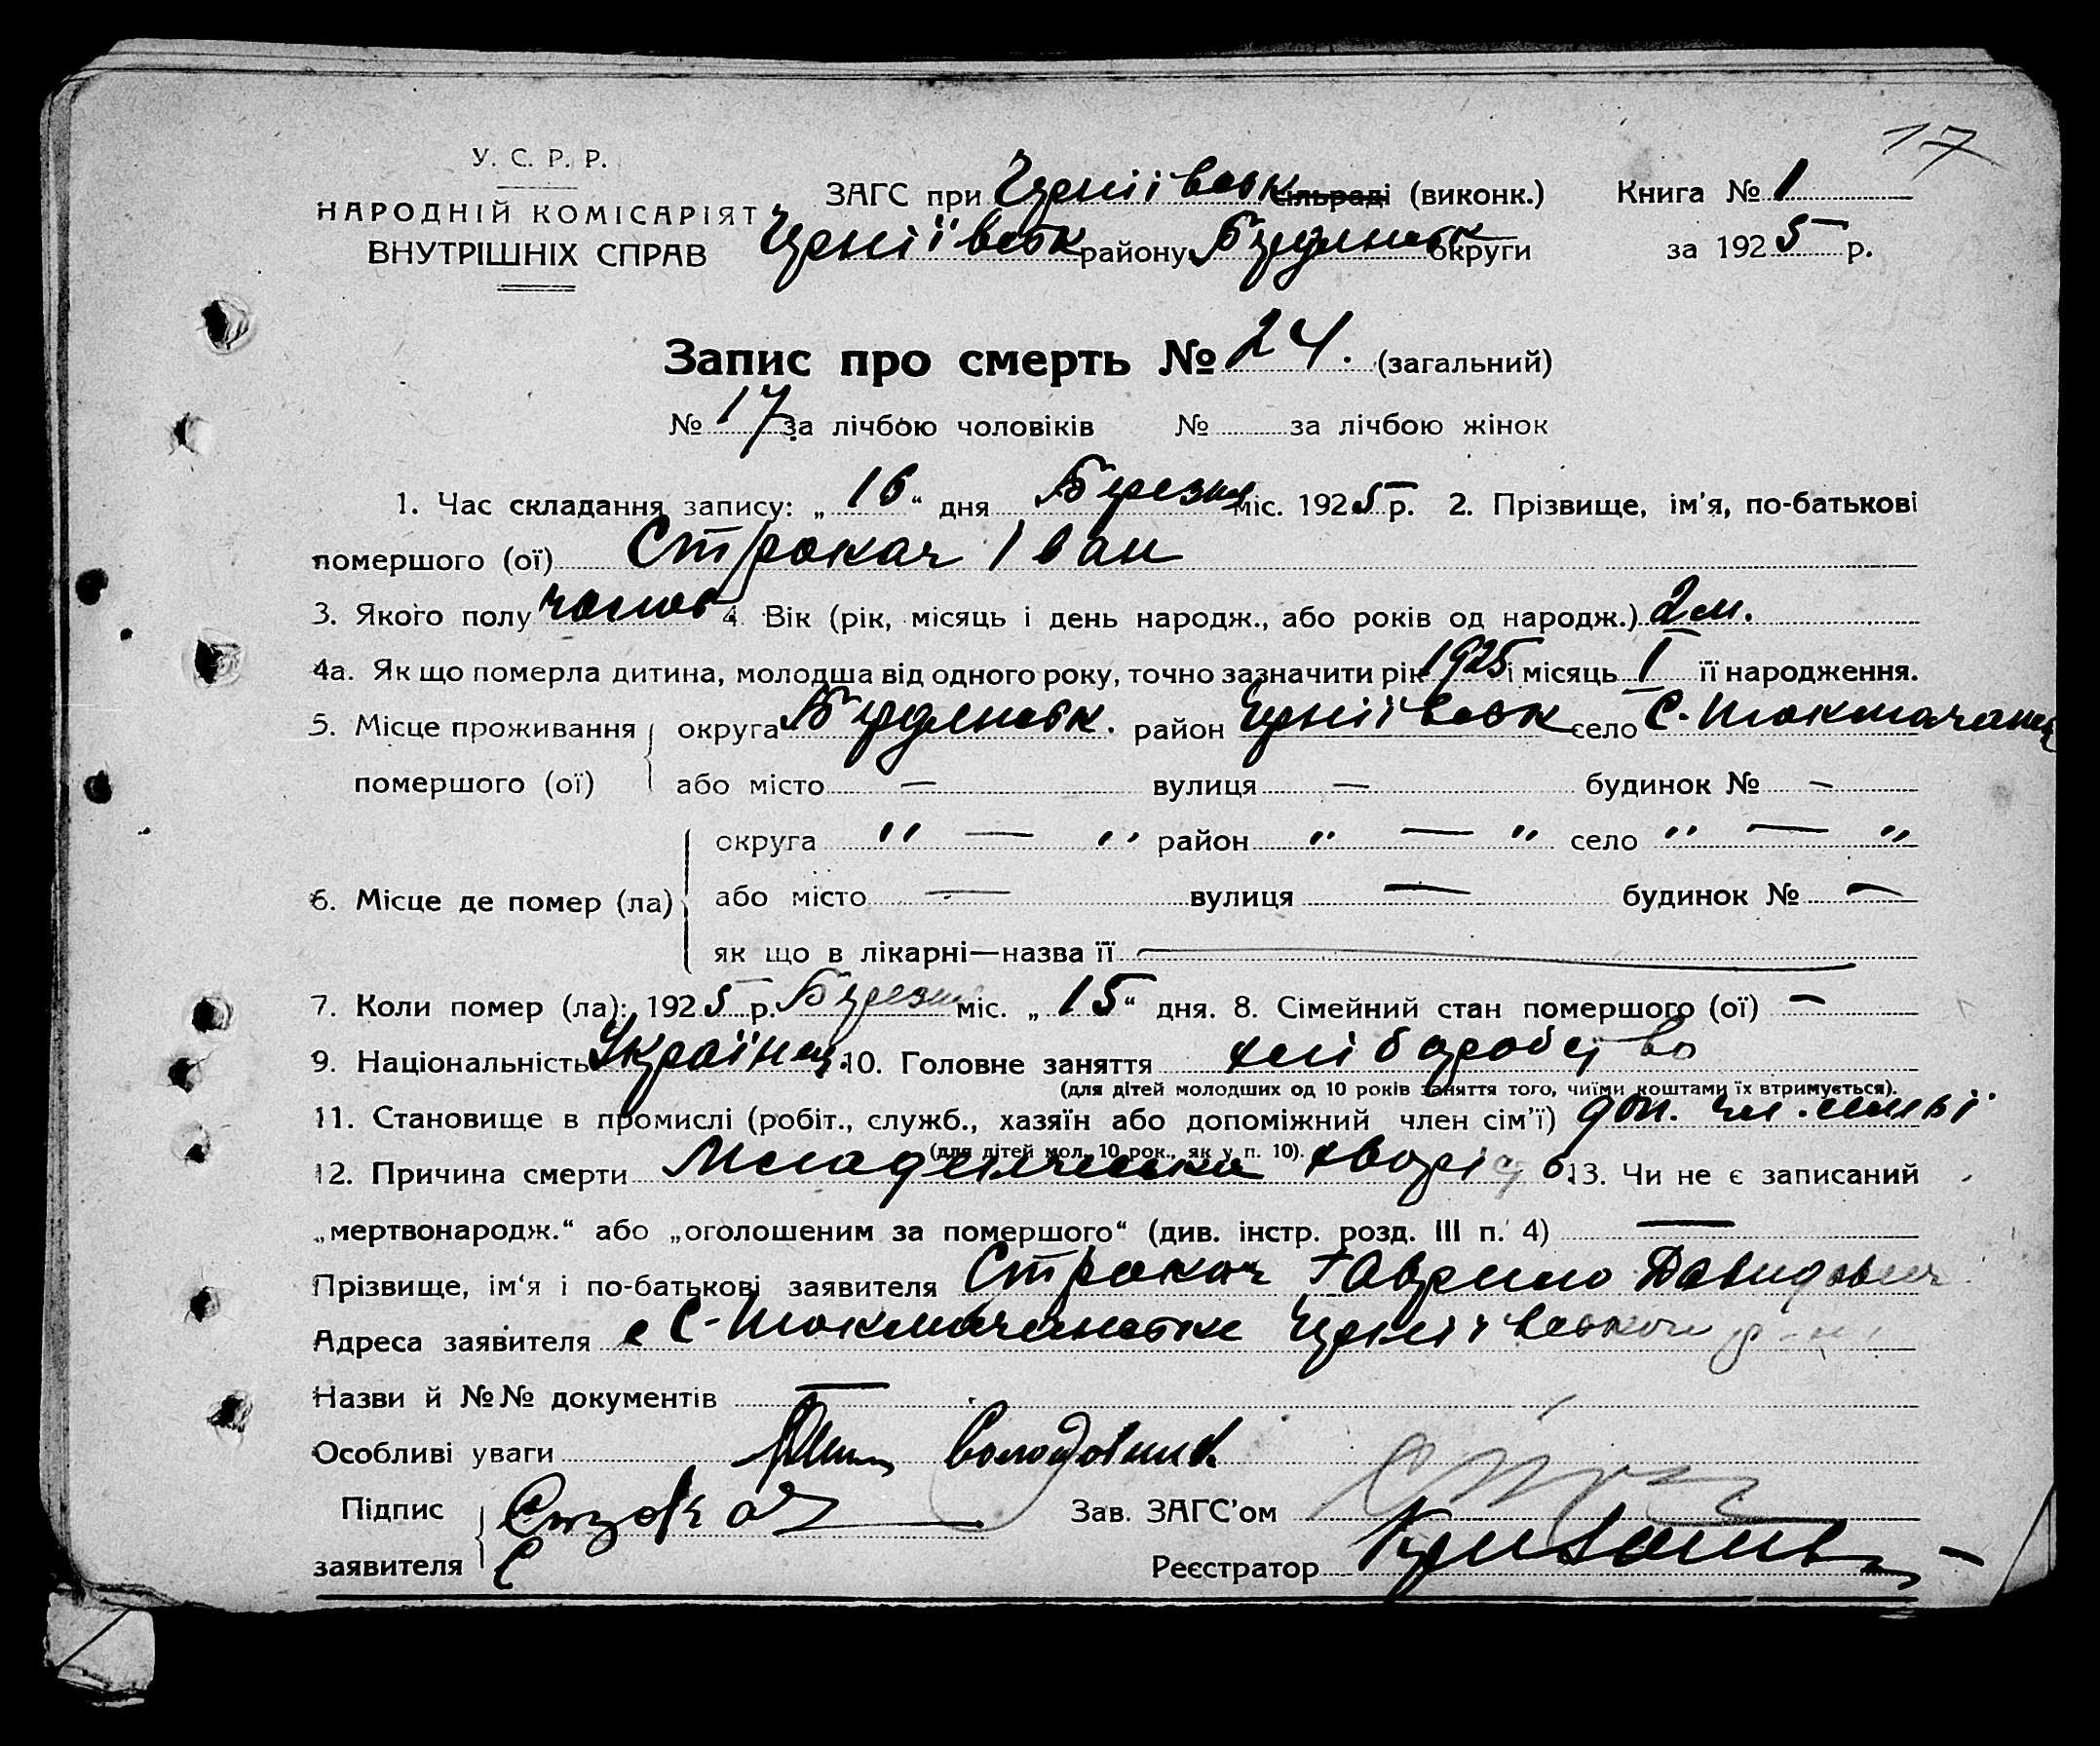 17
У. С. Р. Р.
НАРОДНІЙ КОМІСАРІЯТ
ВНУТРІШНІХ СПРАВ
ЗАГС при Черніївськ сільраді (виконк.) Книга № 1
Черніївськ району Бердянськ округи за 1925 р.
Запис про смерть № 24. (загальний)
№ 17 за лічбою чоловіків № за лічбою жінок
1. Час складання запису: „ 16 “ дня Березня міс. 1925 р. 2. Прізвище, ім'я, по-батькові
помершого (ої) Строкач Іван
3. Якого полу чолов 4. Вік (рік, місяць і день народж., або років од народж.) 2 м.
4а. Як що померла дитина, молодша від одного року, точно зазначити рік 1925 і місяць I її народження.
5. Місце проживання округа Бердянськ. район Черніївськ село С-Токмачанка
помершого (ої) або місто — вулиця — будинок № —
округа " — " район " — " село " — "
6. Місце де помер (ла) або місто — вулиця — будинок № —
як що в лікарні—назва її —
7. Коли помер (ла): 1925 р. Березня міс. „ 15 “ дня. 8. Сімейний стан помершого (ої) —
9. Національність Українец. 10. Головне заняття хліборобство
(для дітей молодших од 10 років заняття того, чиїми коштами їх втримується).
11. Становище в промислі (робіт., служб., хазяїн або допоміжний член сім'ї) доп. чл. сімьі
(для дітей мол. 10 рок., як у п. 10).
12. Причина смерти Младенческа 13. Чи не є записаний
„мертвонародж.“ або „оголошеним за помершого“ (див. інстр. розд. III п. 4) —
Прізвище, ім'я і по-батькові заявителя Строкач Гаврило Давидович
Адреса заявителя с С-Токмачанка Черніївського р-н
Назви й №№ документів —
Особливі уваги
Підпис заявителя Строкач Зав. ЗАГС'ом
Реєстратор